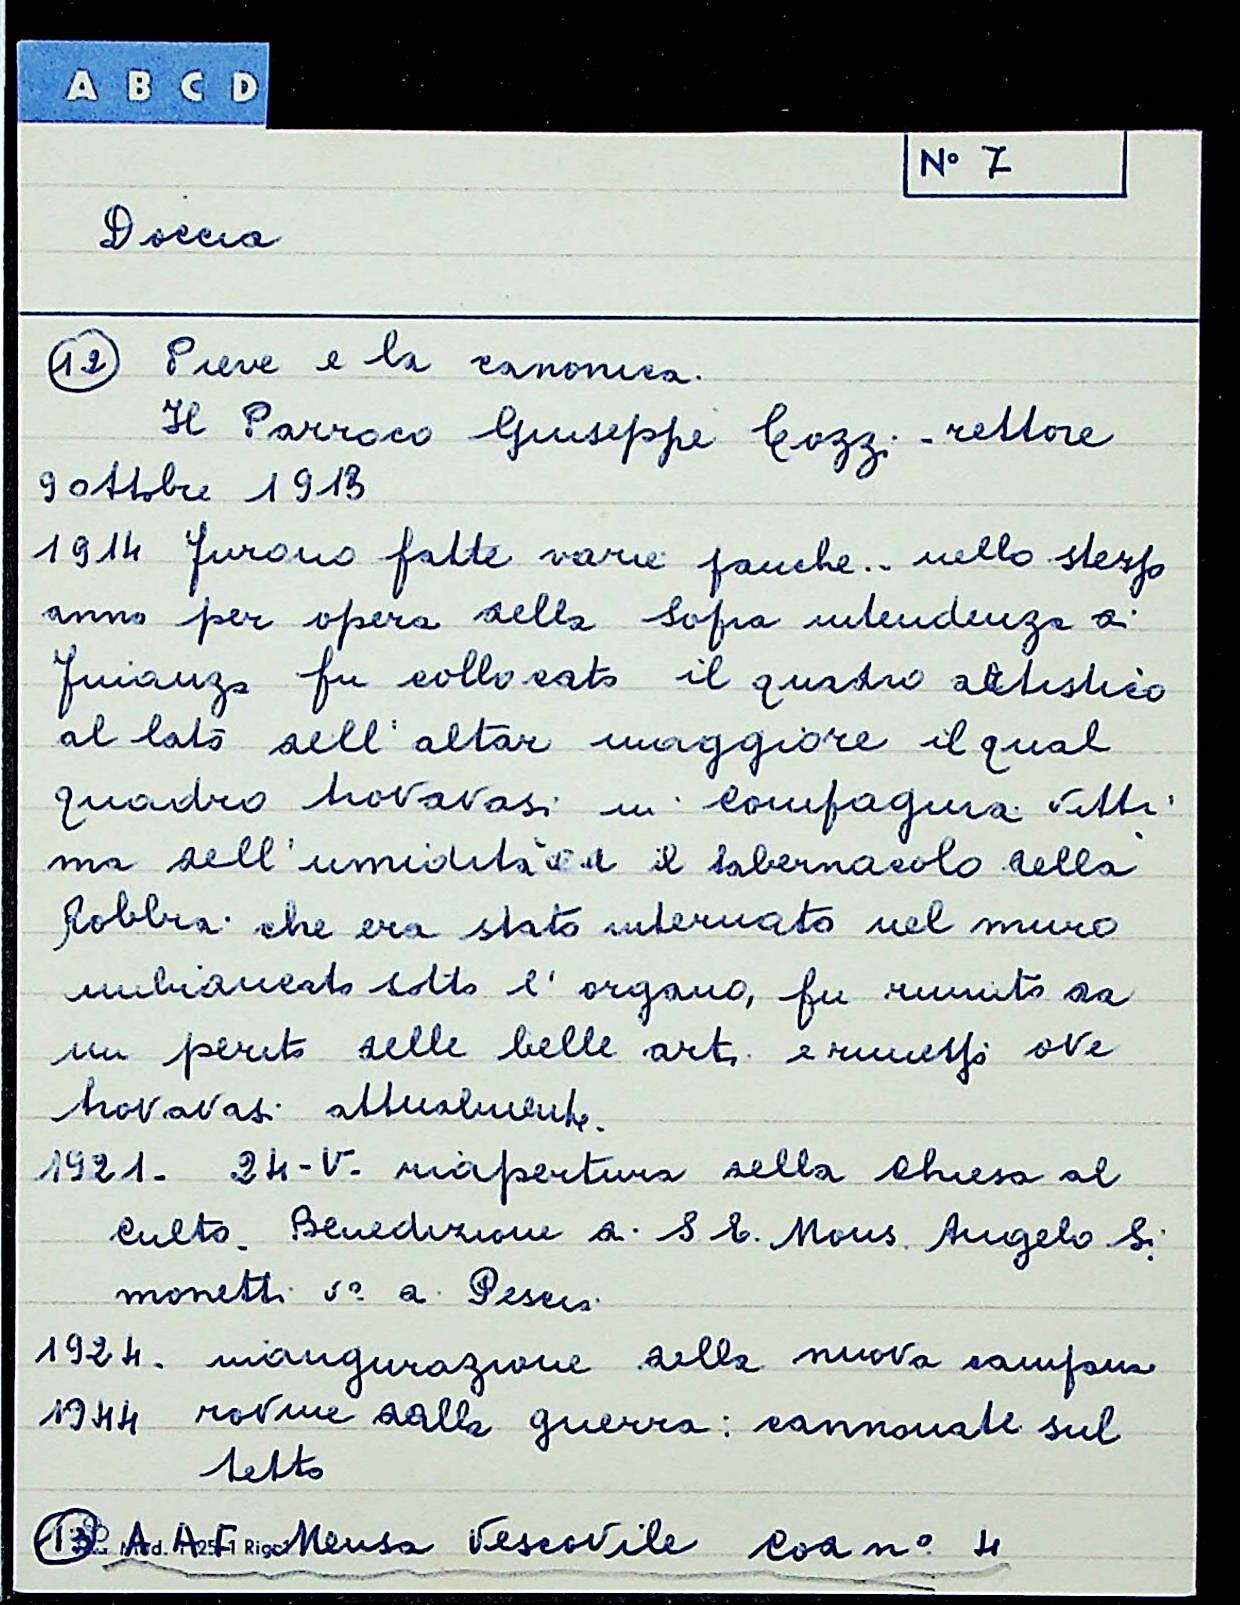 A B C D
N° 7
Doccia
12 Pieve e la canonica.
Il Parroco Giuseppe Cozzi - rettore
9 ottobre 1913
1914 Furono fatte varie panche.. nello stesso
anno per opera della Sopra intendenza di
Finanza fu collocato il quadro artistico
al lato dell'altar maggiore il qual
quadro trovavasi in Compagnia vitti
ma dell'umidità ed il tabernacolo della
Robbia che era stato internato nel muro
imbiancato sotto l'organo, fu
un perito delle belle arti e rimesso ove
trovavasi attualmente.
1921. 24-V- riapertura della Chiesa al
culto. Benedizione di S E. Mons. Angelo Si
monetti v° di Pescia
1924. inaugurazione della nuova campana
1944 rovine dalla guerra: cannonate sul
tetto
13 A A F Mensa Vescovile Cod n° 4